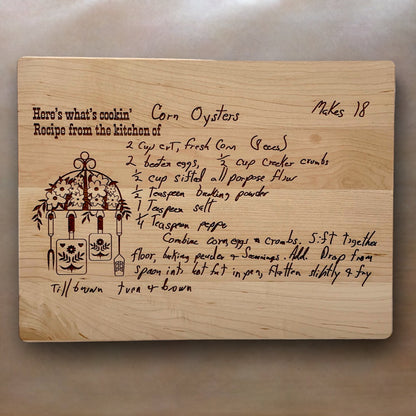 Here's what's cookin' Corn Oysters Makes 18
Recipe from the kitchen of
2 cup cut, fresh corn (8 ears)
2 beaten eggs, 1/2 cup cracker crumbs
1/2 cup sifted all purpose flour
1/2 Teaspoon baking powder
1 Teaspoon salt
1/4 Teaspoon pepper
Combine corn, eggs & crumbs. Sift together
flour, baking powder & Seasonings. Add. Drop from
spoon into hot fat in pan, flatten slightly & fry
Till brown turn & brown